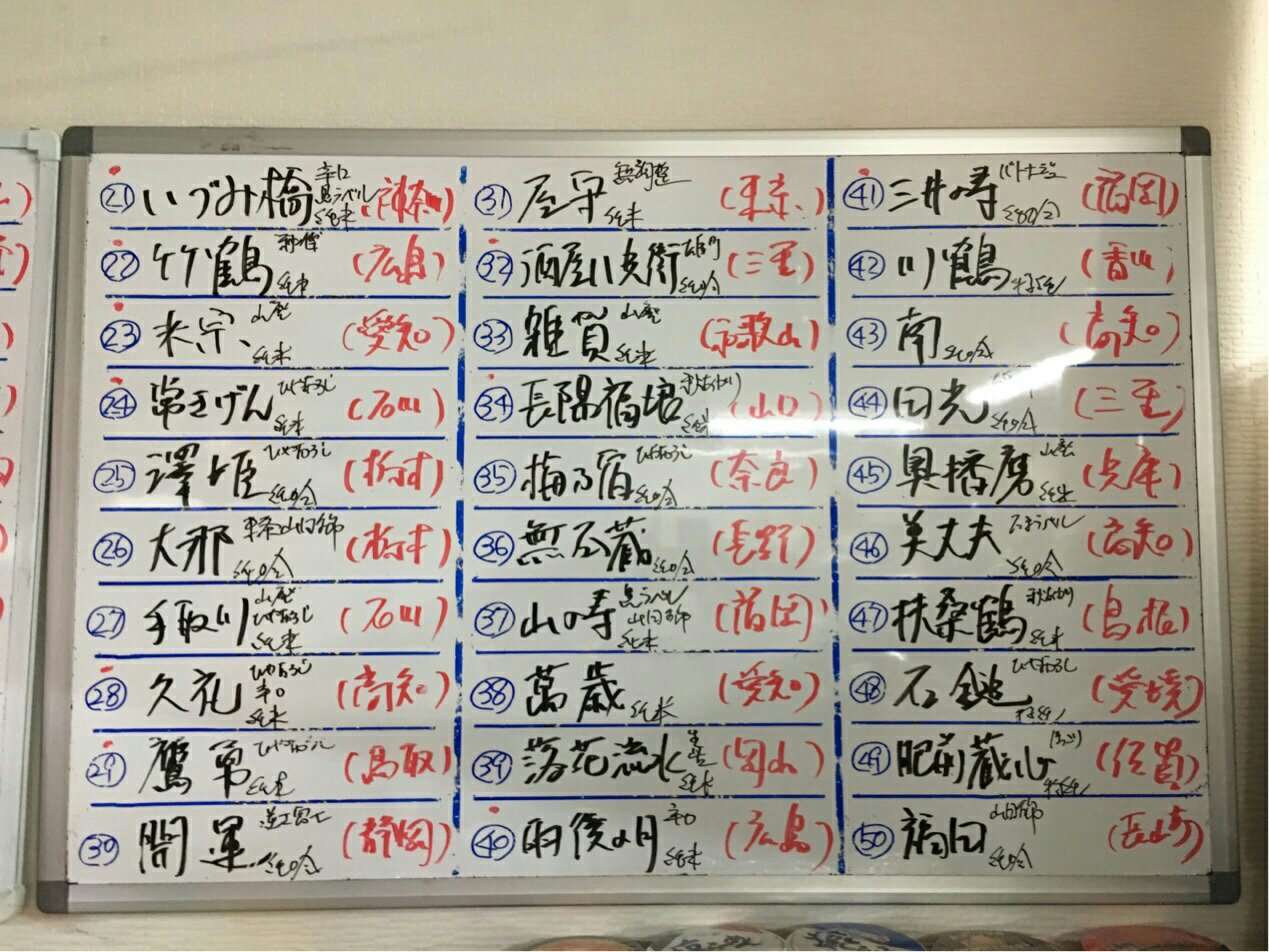 ㉑ いづみ橋 辛口 黒ラベル 純米 (神奈川)
㉒ 竹鶴 秘傳 純米 (広島)
㉓ 米宗 山廃 純米 (愛知)
㉔ 常きげん ひやおろし 純米 (石川)
㉕ 澤姫 ひやおろし 純吟 (栃木)
㉖ 大那 東条山田錦 純吟 (栃木)
㉗ 手取川 山廃 ひやおろし 純米 (石川)
㉘ 久礼 ひやおろし 辛口 純米 (高知)
㉙ 鷹勇 ひやおろし 純米 (鳥取)
㉚ 開運 逆さ富士 純吟 (静岡)
㉛ 屋守 無調整 純米 (東京)
㉜ 酒屋八兵衛 純吟 (三重)
㉝ 雑賀 山廃 純米 (和歌山)
㉞ 長陽福娘 秋あがり 純米 (山口)
㉟ 梅乃宿 ひやおろし 純吟 (奈良)
㊱ 無石蔵 純吟 (長野)
㊲ 山の壽 黒ラベル 山田錦 純米 (福岡)
㊳ 萬歳 純米 (愛知)
㊴ 落花流水 純米 (岡山)
㊵ 雨後の月 辛口 純米 (広島)
㊶ 三井の寿 バトナージュ 純吟 (福岡)
㊷ 川鶴 特純 (香川)
㊸ 南 純吟 (高知)
㊹ 田光 純吟 (三重)
㊺ 奥播磨 山廃 純米 (兵庫)
㊻ 美丈夫 純吟 (高知)
㊼ 扶桑鶴 秋あがり 純米 (島根)
㊽ 石鎚 ひやおろし 特純 (愛媛)
㊾ 肥前蔵心 特純 (佐賀)
㊿ 福田 山田錦 純吟 (長崎)